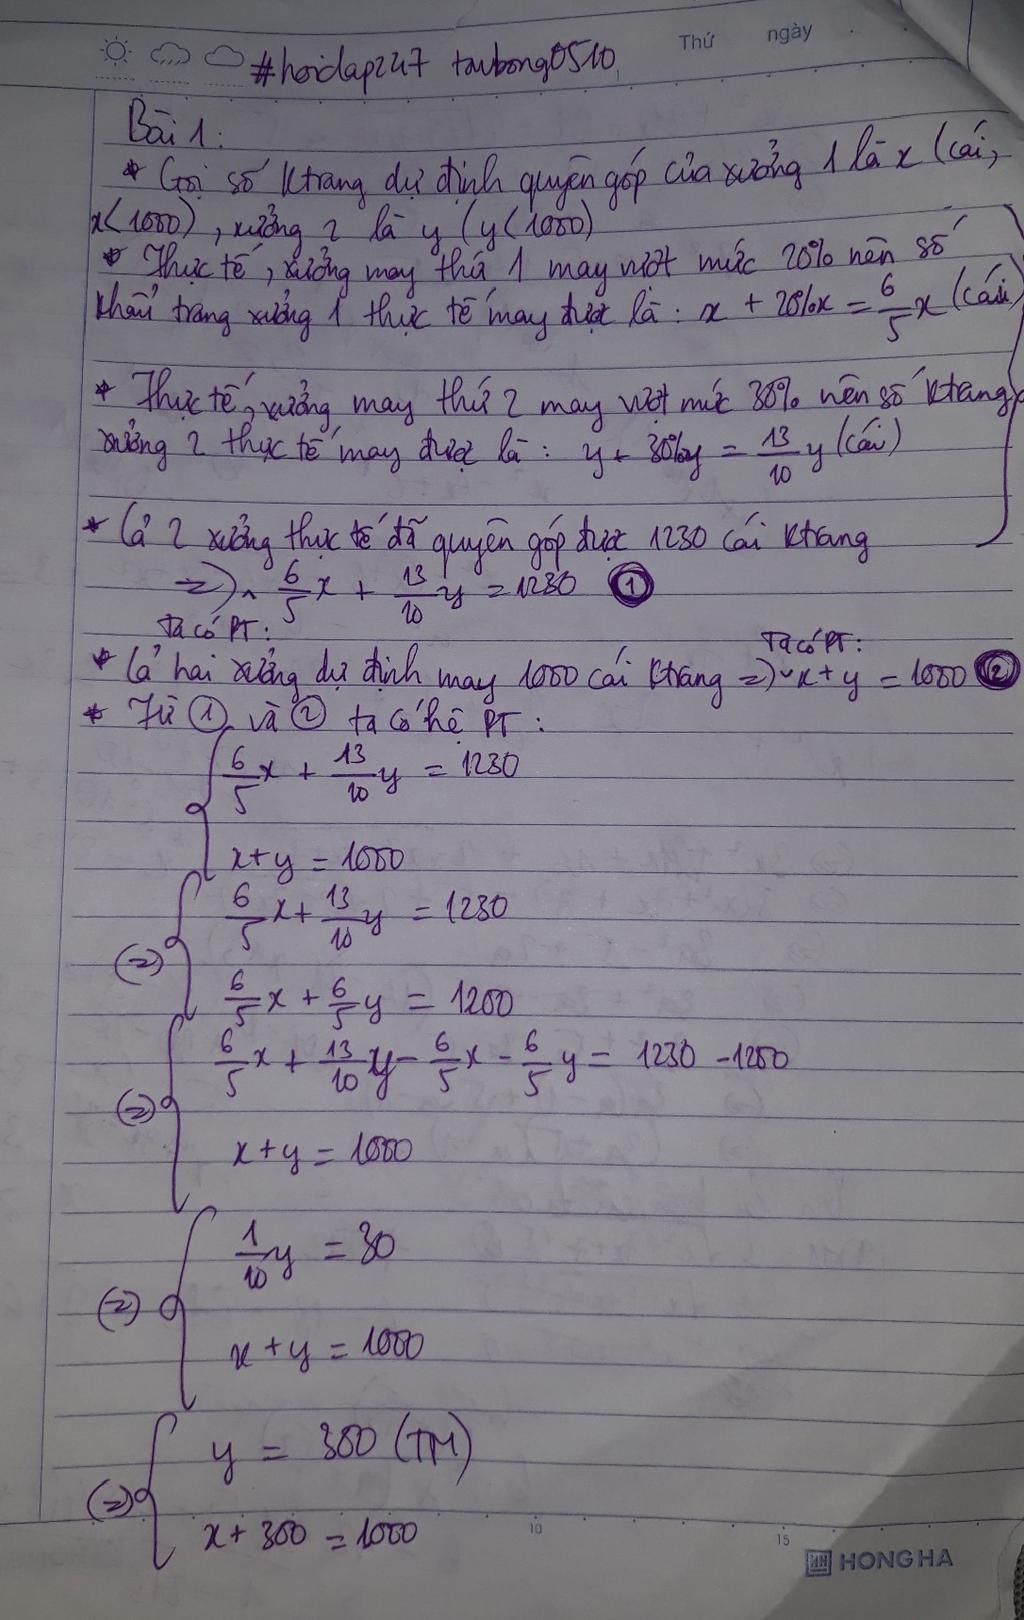 Thứ ngày
#hoidap247 taubong0510
Bài 1:
* Gọi số Ktrang dự định quyên góp của xưởng 1 là x (cái,
x<1000), xưởng 2 là y (y<1000)
* Thực tế, xưởng may thứ 1 may vượt mức 20% nên số
khẩu trang xưởng 1 thực tế may được là: x + 20%x = 6/5 x (cái)
* Thực tế, xưởng may thứ 2 may vượt mức 30% nên số Ktrang
xưởng 2 thực tế may được là: y + 30%y = 13/10 y (cái)
* Cả 2 xưởng thực tế đã quyên góp được 1230 cái Ktrang
=> 6/5 x + 13/10 y = 1230 ①
Ta có PT: Ta có PT:
* Cả hai xưởng dự định may 1000 cái Ktrang => x + y = 1000 ②
* Từ ① và ② ta có hệ PT:
6/5 x + 13/10 y = 1230
x + y = 1000
(=) 6/5 x + 13/10 y = 1230
6/5 x + 6/5 y = 1200
(=) 6/5 x + 13/10 y - 6/5 x - 6/5 y = 1230 - 1200
x + y = 1000
(=) 1/10 y = 30
x + y = 1000
(=) y = 300 (TM)
x + 300 = 1000
10 15
HH HONG HA